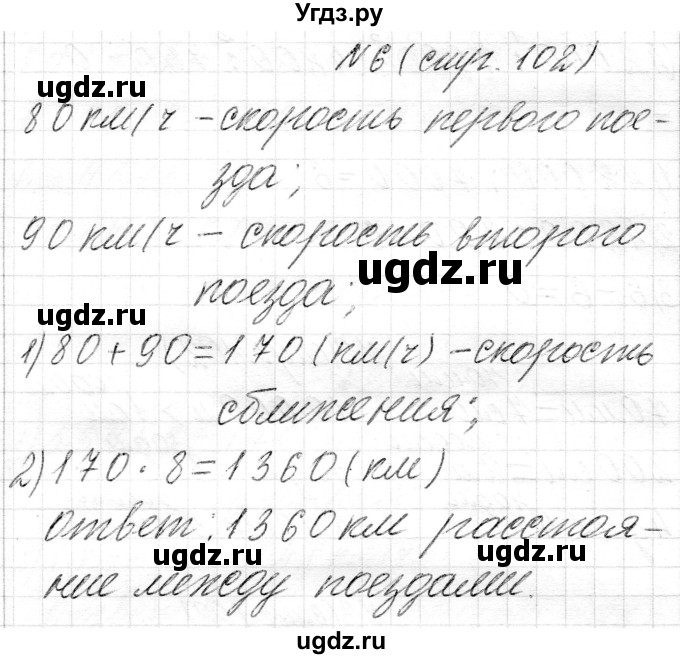 Угдз.ру
№6 (стр. 102)
ugdz.ru ugdz.ru
80 км/ч - скорость первого пое-
зда;
90 км/ч - скорость второго
ugdz.ru
поезда;
ugdz.ru
1) 80 + 90 = 170 (км/ч) - скорость
сближения;
2) 170 · 8 = 1360 (км)
Ответ: 1360 км расстоя-
ugdz.ru ugdz.ru
ние между поездами.
ugdz.ru